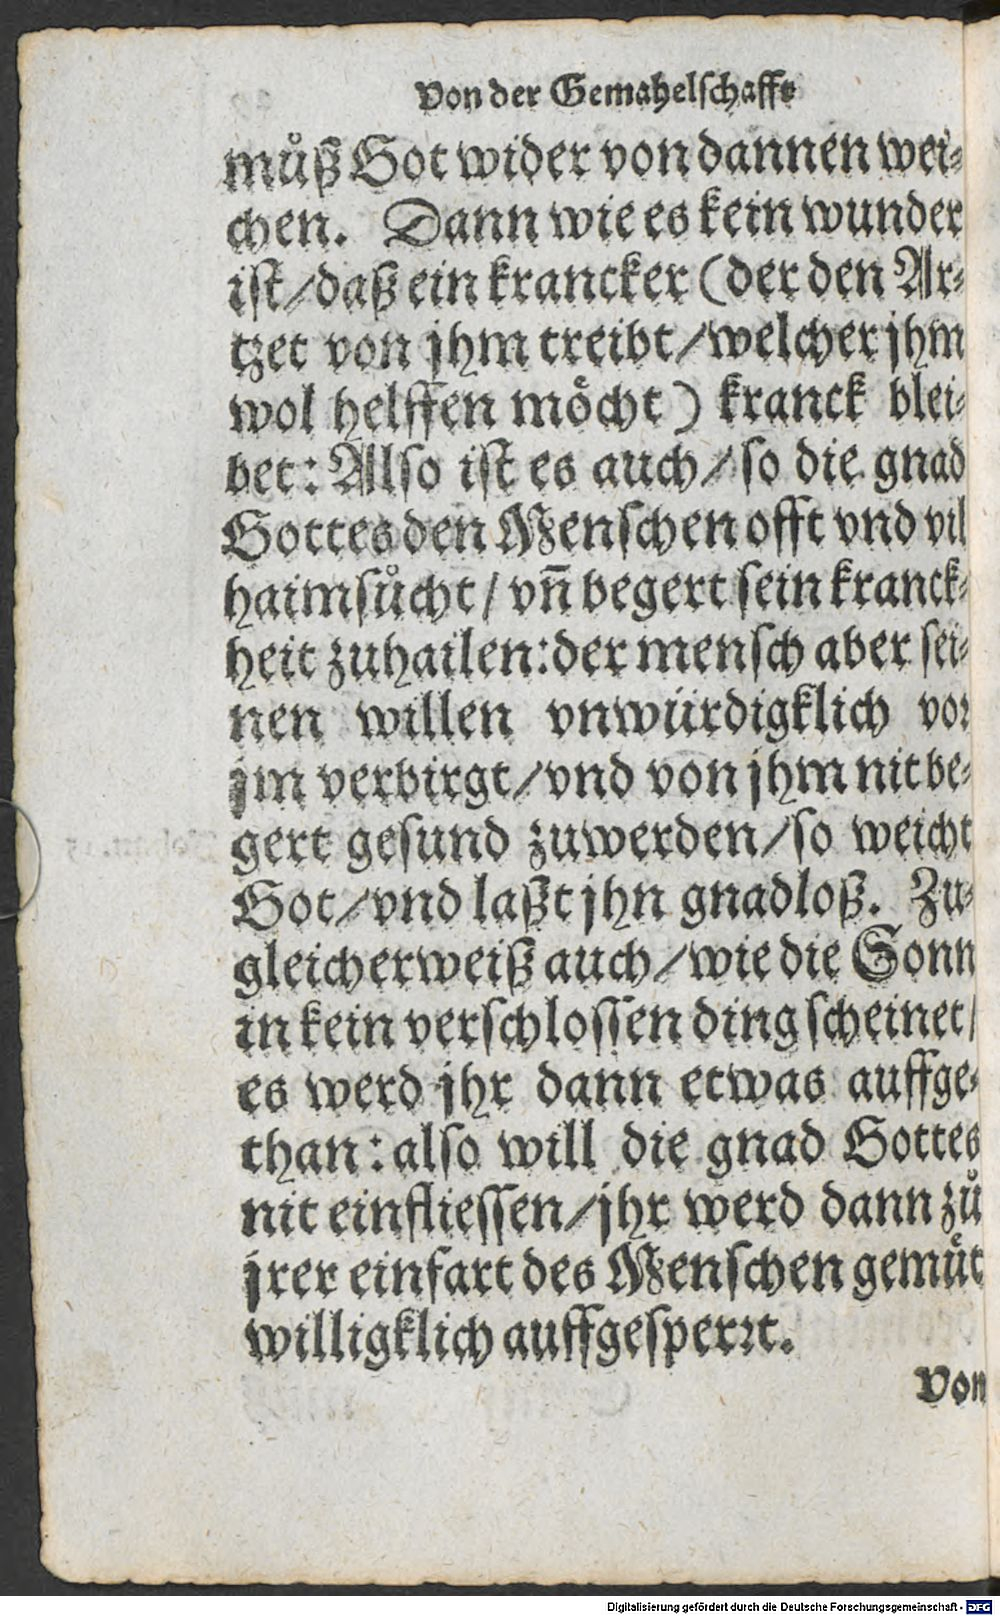 Von der Gemahelschafft
můſz Got wider von dannen wei⸗
chen. Dann wie es kein wunder
iſt/daß ein krancker (der den Ar⸗
tzet von jhm treibt/welcher jhm
wol helffen moͤcht) kranck blei⸗
bet: Alſo iſt es auch/ſo die gnad
Gottes den Menſchen offt vnd vil
haimſůcht/vñ begert ſein kranck⸗
heit zuhailen: der menſch aber ſei⸗
nen willen vnwürdigklich vor
jm verbirgt/vnd von jhm nit be⸗
gert geſund zuwerden/ſo weicht
Got/vnd laßt jhn gnadloß. Zu⸗
gleicherweiß auch/wie die Sonn
in kein verſchloſſen ding ſcheinet/
es werd jhr dann etwas auffge⸗
than: alſo will die gnad Gottes
nit einflieſſen/jhr werd dann zů
jrer einfart des Menſchen gemüt
willigklich auffgeſperꝛt.
Von
Digitalisierung gefördert durch die Deutsche Forschungsgemeinschaft - DFG